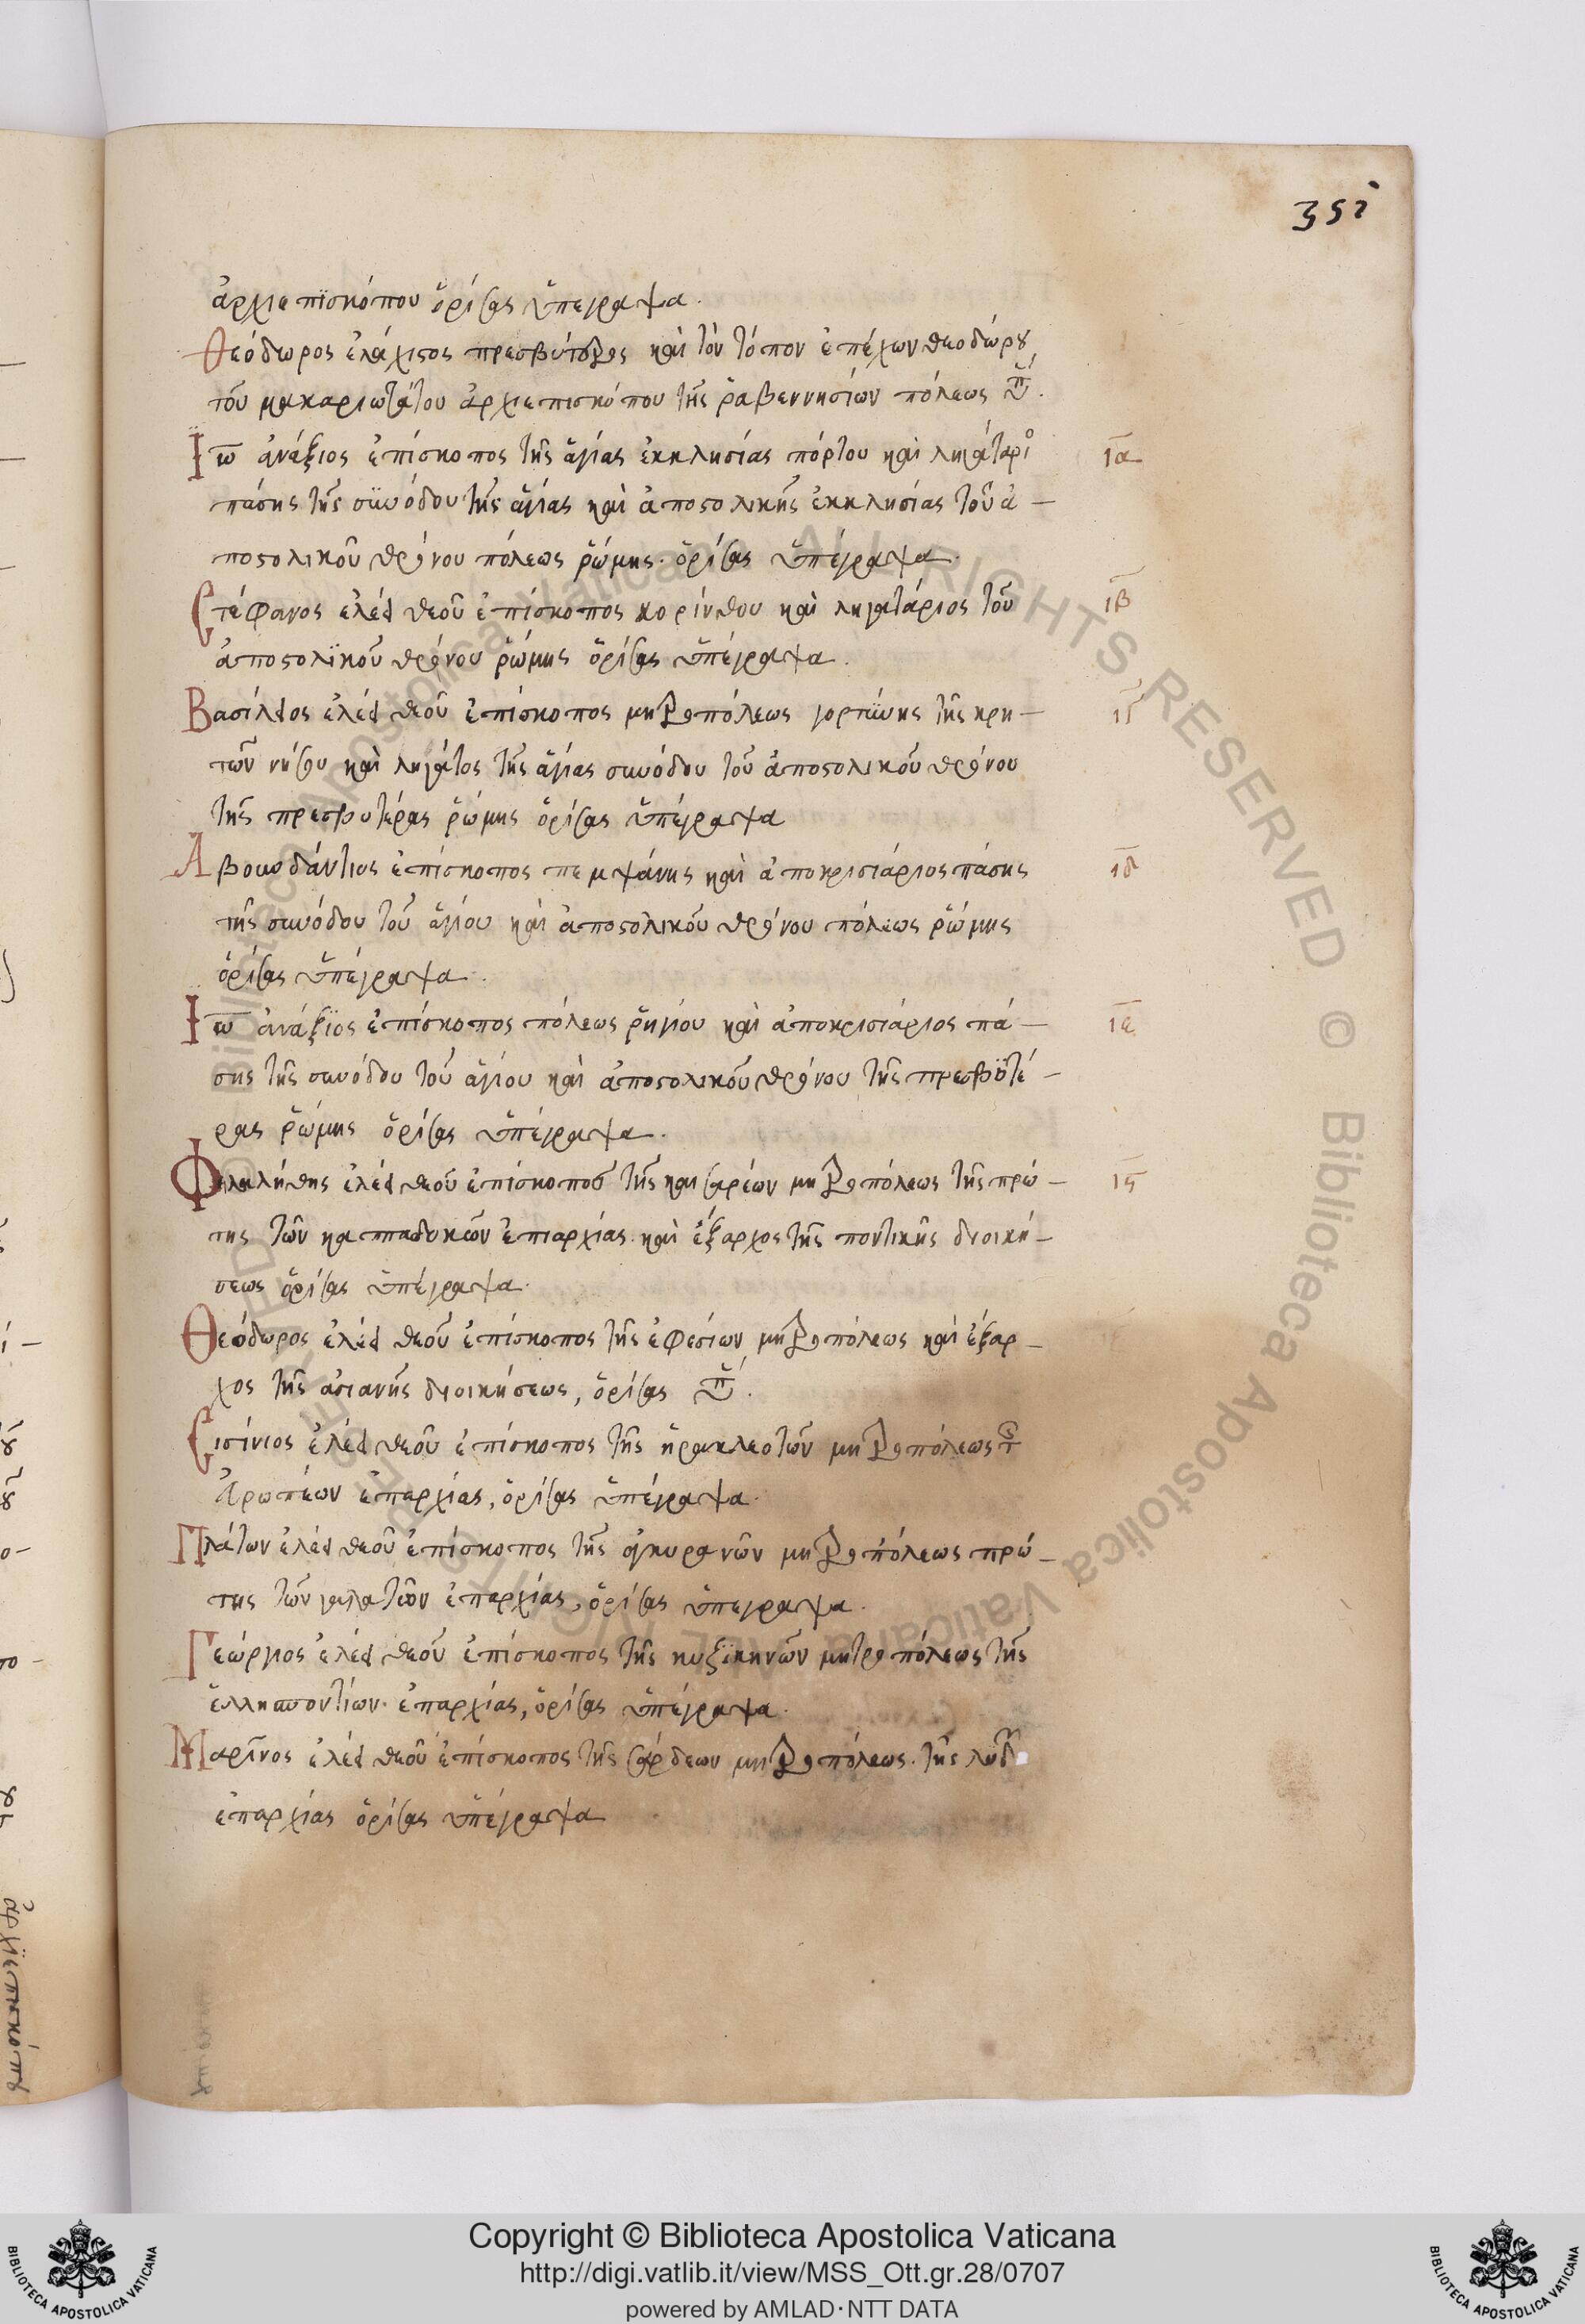 351
ἀρχιεπϊσκόπου ὁρίσας ὑπεγραψα.
Θεόδωρος ἐλάχιστος πρεσβύτερος καὶ τὸν τόπον ἐπέχων θεοδώρου
τοῦ μακαριωτάτου ἀρχιεπισκόπου τῆς ῥαβεννησίων πόλεως ὑπ.
Ἰω ἀνάξιος ἐπίσκοπος τῆς ἁγίας ἐκκλησίας πόρτου καὶ ληγατάριο ια
πάσης τῆς σϋνόδου τῆς ἁγίας καὶ ἀποστολικῆς ἐκκλησίας τοῦ ἀ—
ποστολικοῦ θρόνου πόλεως ῥώμης. ὁρίσας ὑπέγραψα.
Στέφανος ἐλέει θεοῦ ἐπίσκοπος κορίνθου καὶ ληγατάριος τοῦ ιβ
ἀποστολϊκοῦ θρόνου ῥώμης ὁρίσας ὑπέγραψα.
Βασίλειος ἐλέει θεοῦ ἐπίσκοπος μητροπόλεως γορτϋνης τῆς κρη— ιγ
τῶν νήσου καὶ ληγάτος τῆς ἁγίας συνόδου τοῦ ἀποστολικοῦ θρόνου
τῆς πρεσβυτέρας ῥώμης ὁρίσας ὑπέγραψα
Ἀβουνδάντιος ἐπίσκοπος πεμψάνης καὶ ἀποκρισιάριος πάσης ιδ
τῆς συνόδου τοῦ ἁγίου καὶ ἀποστολικοῦ θρόνου πόλεως ῥώμης
ὁρίσας ὑπέγραψα.
Ἰω ἀνάξϊος ἐπίσκοπος πόλεως ῥηγίου καὶ ἀποκρισιάριος πά— ιε
σης τῆς συνόδου τοῦ ἁγίου καὶ ἀποστολικοῦ θρόνου τῆς πρεσβϋτέ—
ρας ῥώμης ὁρίσας ὑπέγραψα.
Φιλαλήθης ἐλέει θεοῦ ἐπίσκοπος τῆς καισαρέων μητροπόλεως τῆς πρώ— ιϛ
της τῶν καππαδυκῶν ἐπιαρχίας καὶ ἔξαρχος τῆς ποντικῆς διοική—
σεως ὁρίσας ὑπέγραψα.
Θεόδωρος ἐλέει θεοῦ ἐπίσκοπος τῆς ἐφεσίων μητροπόλεως καὶ ἐξαρ—
χος τῆς ἀσιανῆς διοικήσεως, ὁρίσας ὑπ.
Σισίνιος ἐλέει θεοῦ ἐπίσκοπος τῆς ἡρακλεοτῶν μητροπόλεως τῆς
ἐυρωπέων ἐπαρχίας, ὁρίσας ὑπέγραψα.
Πλάτων ἐλέει θεοῦ ἐπίσκοπος τῆς ἀγκυρανῶν μητροπόλεως πρώ—
της τῶν γαλατῶν ἐπαρχίας, ὁρίσας ὑπεγραψα.
Γεώργιος ἐλέει θεοῦ ἐπίσκοπος τῆς κυζϊκηνῶν μητροπόλεως τῆς
ἑλλησποντίων ἐπαρχίας, ὁρίσας ὑπέγραψα.
Μαρῖνος ἐλέει θεοῦ ἐπίσκοπος τῆς σάρδεων μητροπόλεως. τῆς λυδ
ἐπαρχίας ὁρίσας ὑπέγραψα
Copyright © Biblioteca Apostolica Vaticana
http://digi.vatlib.it/view/MSS_Ott.gr.28/0707
powered by AMLAD·NTT DATA
BIBLIOTECA APOSTOLICA VATICANA
BIBLIOTECA APOSTOLICA VATICANA